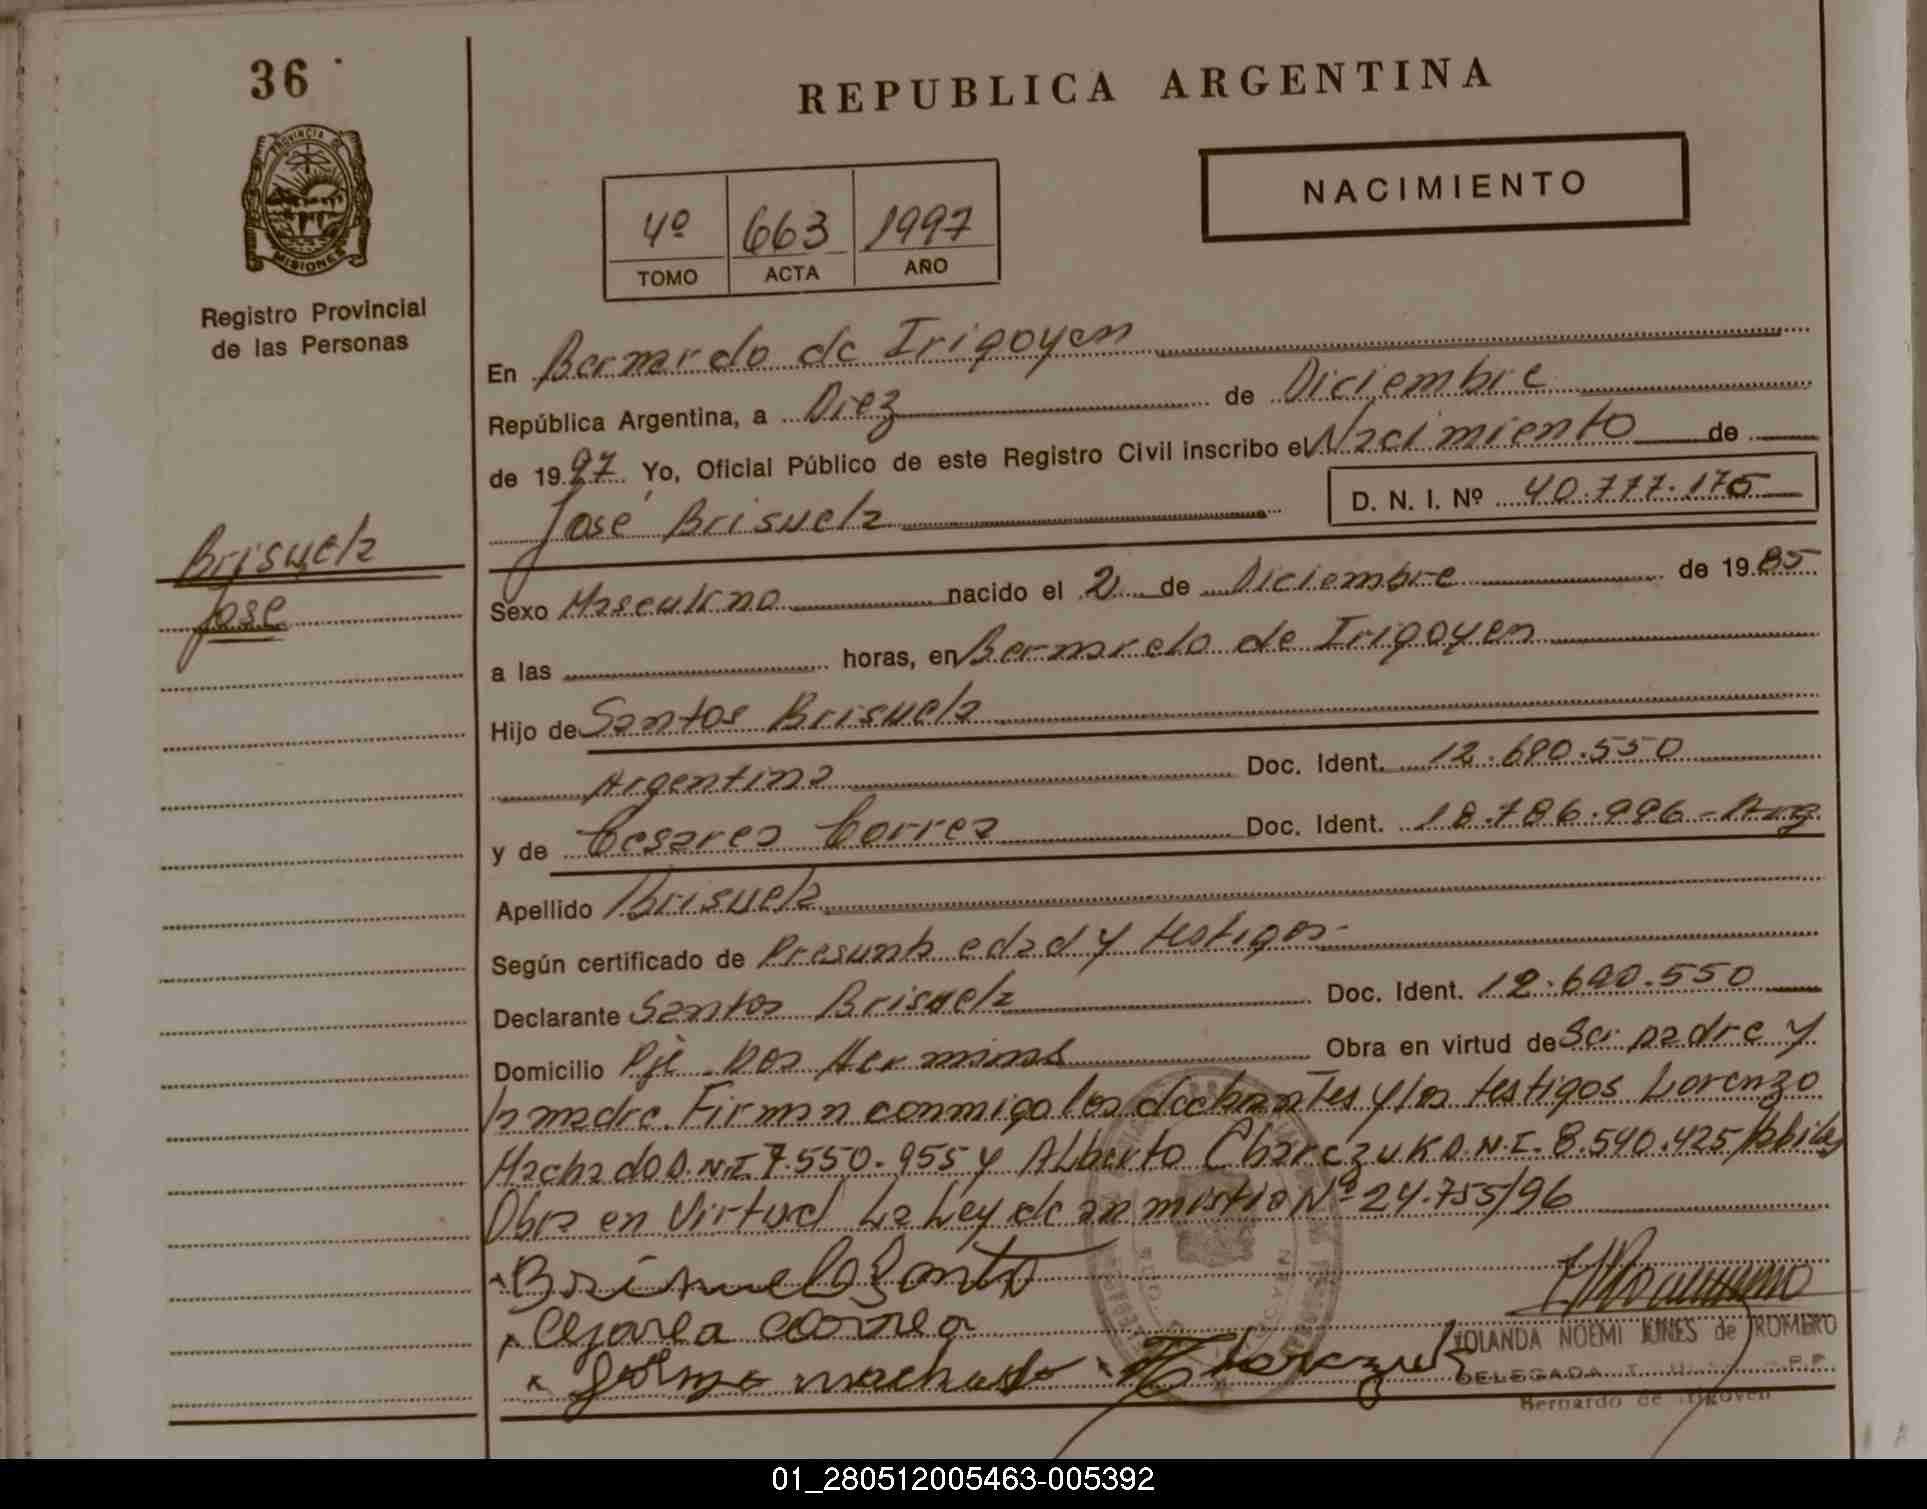 36
REPUBLICA ARGENTINA
PROVINCIA DE
MISIONES
Registro Provincial
de las Personas
4º 663 1997
TOMO ACTA AÑO
NACIMIENTO
En Bernardo de Irigoyen
República Argentina, a Diez de Diciembre
de 1997 Yo, Oficial Público de este Registro Civil inscribo el Nacimiento de
José Brisuela D. N. I. Nº 40.777.175
Brisuela
José
Sexo Masculino nacido el 21 de Diciembre de 1985
a las horas, en Bernardo de Irigoyen
Hijo de Santos Brisuela
Argentina Doc. Ident. 12.690.550
y de Cesarea Correa Doc. Ident. 18.786.996 - Arg
Apellido Brisuela
Según certificado de Presunta edad y testigos
Declarante Santos Brisuela Doc. Ident. 12.690.550
Domicilio Pje Dos Hermanas Obra en virtud de Ser padre y
la madre. Firman conmigo los declarantes y los testigos Lorenzo
Machado D.N.I 7.550.955 y Alberto Charczuk D.N.I. 8.540.425 habiles
Obra en Virtud La Ley de anmistia Nº 24.755/96
Brisuela Santo
Cesarea Correa
machado
YOLANDA NOEMI JUNES de ROMERO
DELEGADA
Bernardo de Irigoyen
01_280512005463-005392